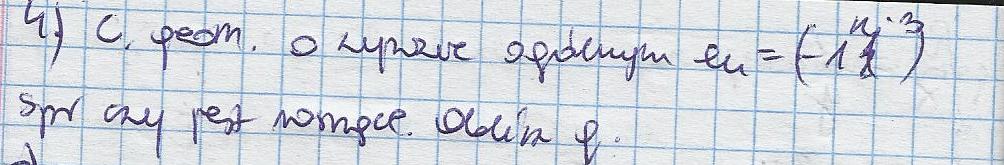 4) C. geom. o wyrazie ogólnym an = (-1)^n · 3
spr czy jest rosnące. Oblicz q.